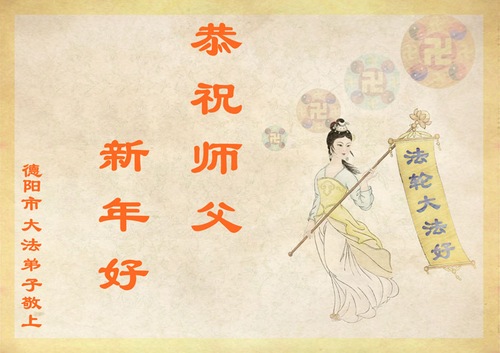 恭祝师父
新年好
德阳市大法弟子敬上
法轮大法好